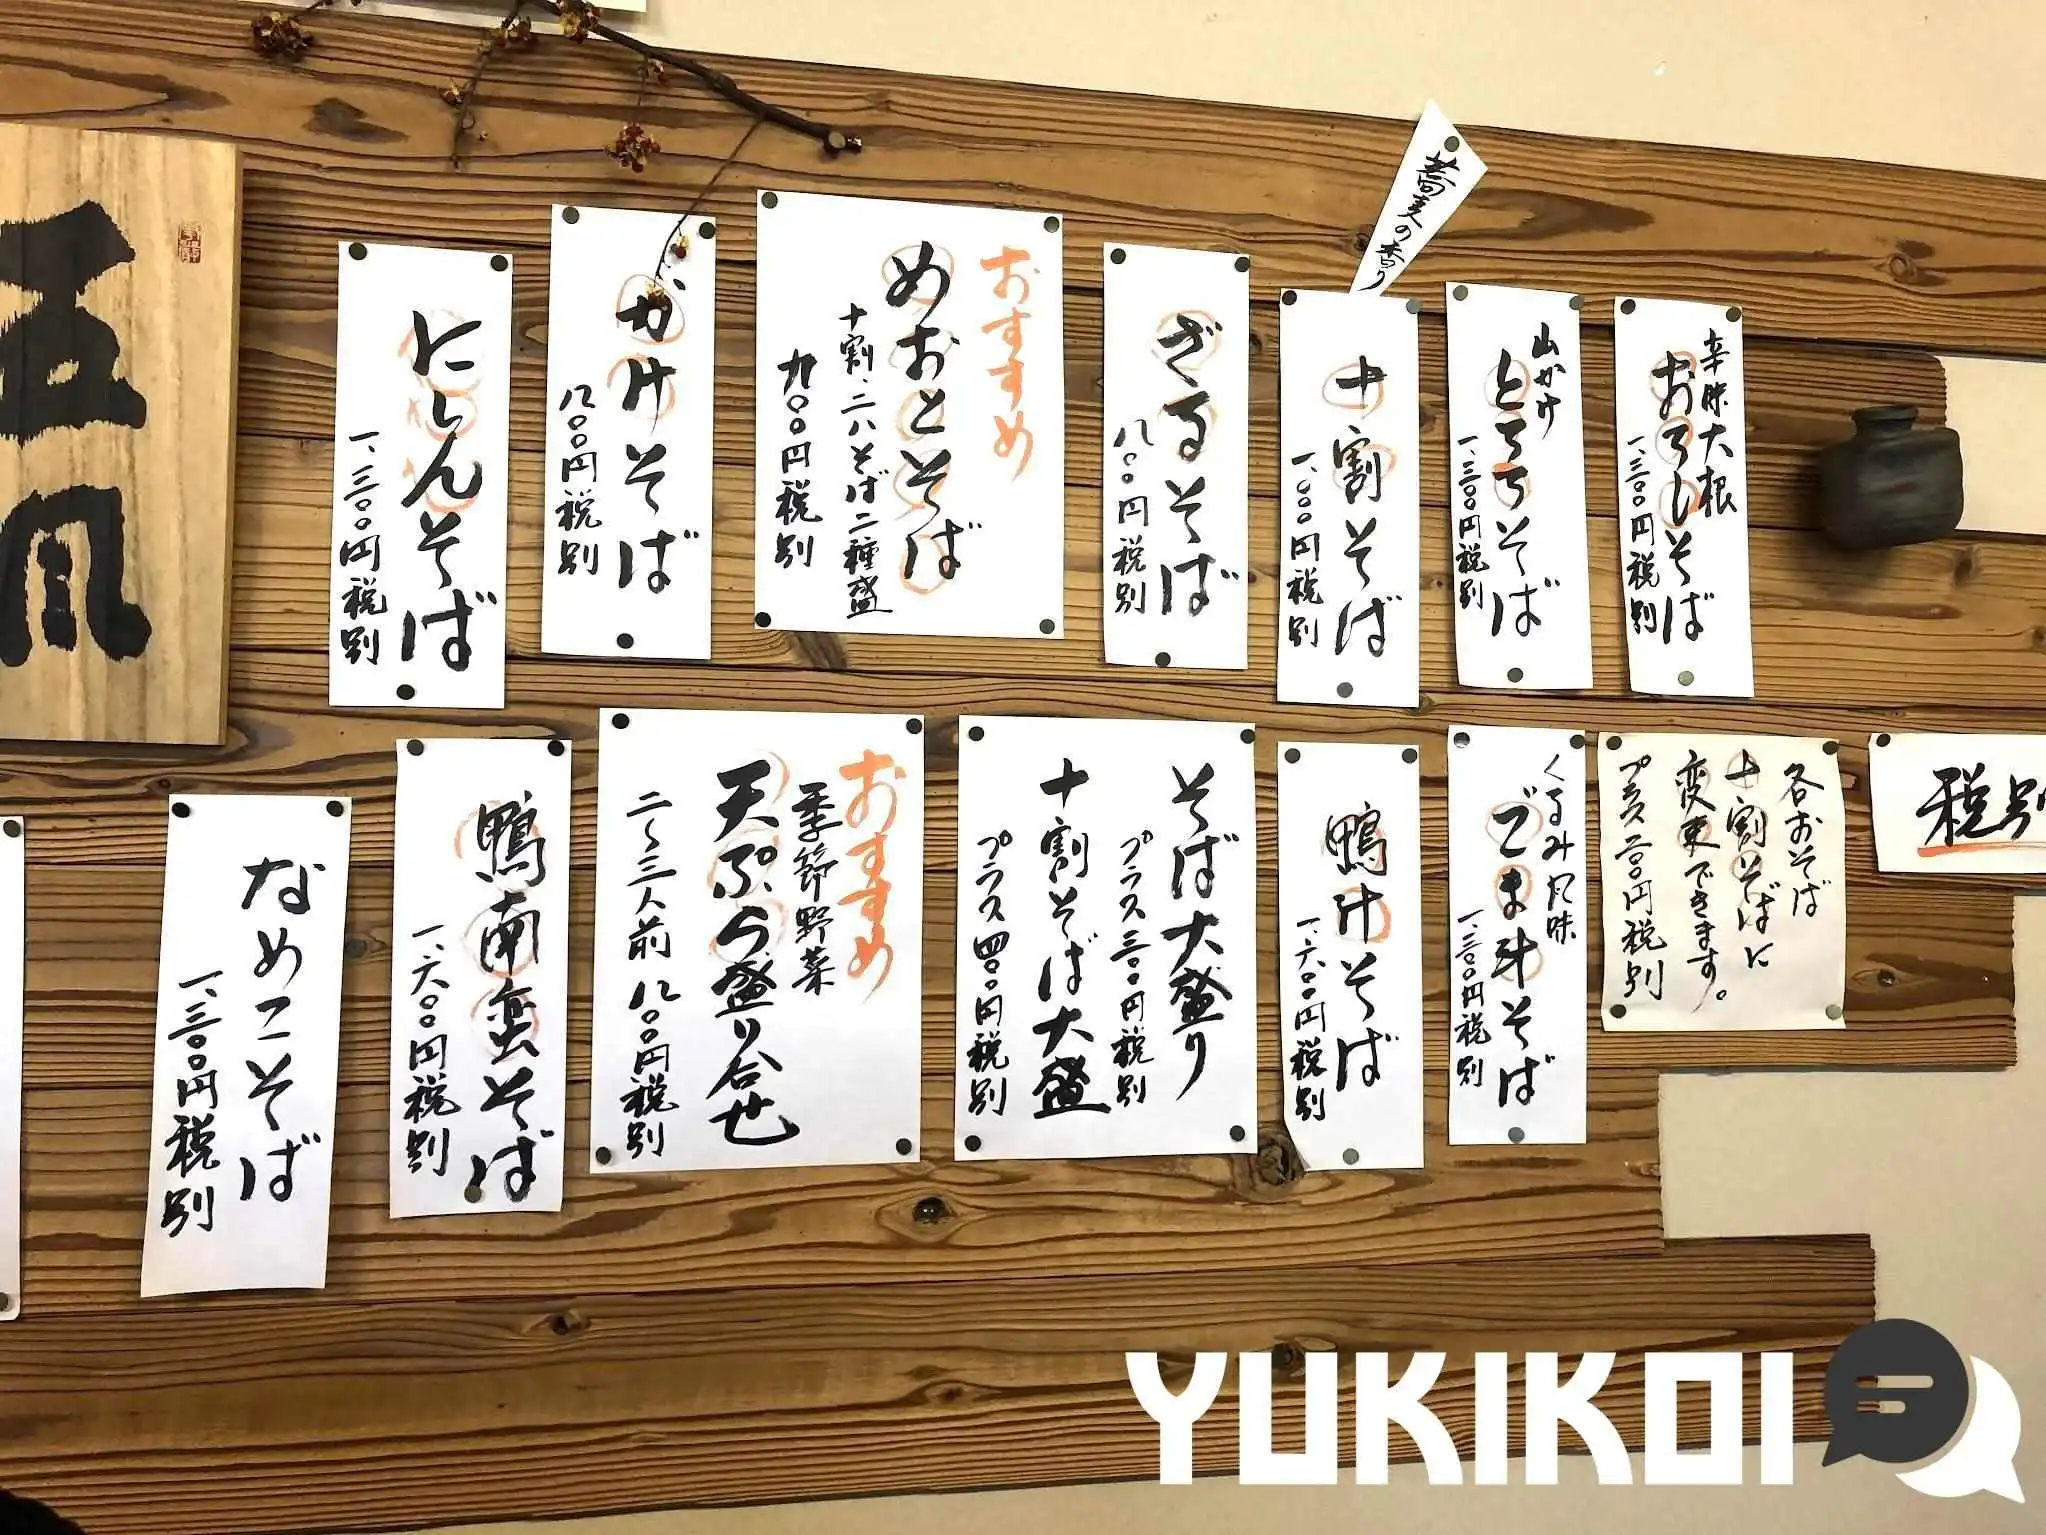 蕎麦の香り
辛味大根
おろしそば
一、三〇〇円税別
山かけ
とろろそば
一、三〇〇円税別
十割そば
一、〇〇〇円税別
ざるそば
八〇〇円税別
おすすめ
めおとそば
十割、二八そば二種盛
九〇〇円税別
かけそば
八〇〇円税別
にしんそば
一、三〇〇円税別
税別
各おそば
十割そばに
変更できます。
プラス二〇〇円税別
くるみ風味
ごま汁そば
一、三〇〇円税別
鴨汁そば
一、六〇〇円税別
そば大盛り
プラス三〇〇円税別
十割そば大盛
プラス四〇〇円税別
おすすめ
季節野菜
天ぷら盛り合せ
二〜三人前 八〇〇円税別
鴨南蛮そば
一、六〇〇円税別
なめこそば
一、三〇〇円税別
YUKIKOI